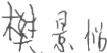 樊景怡